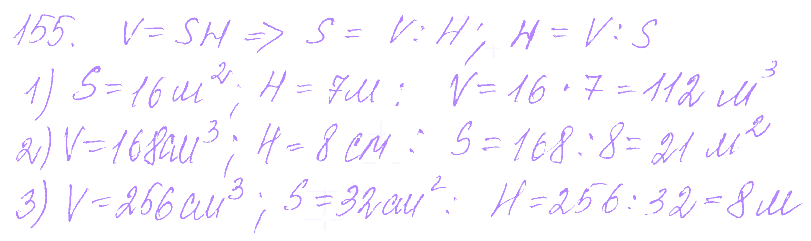 155. V = SH => S = V : H; H = V : S
1) S = 16 м²; H = 7м : V = 16 · 7 = 112 м³
2) V = 168см³; H = 8 см : S = 168 : 8 = 21 м²
3) V = 256см³; S = 32см² : H = 256 : 32 = 8 м